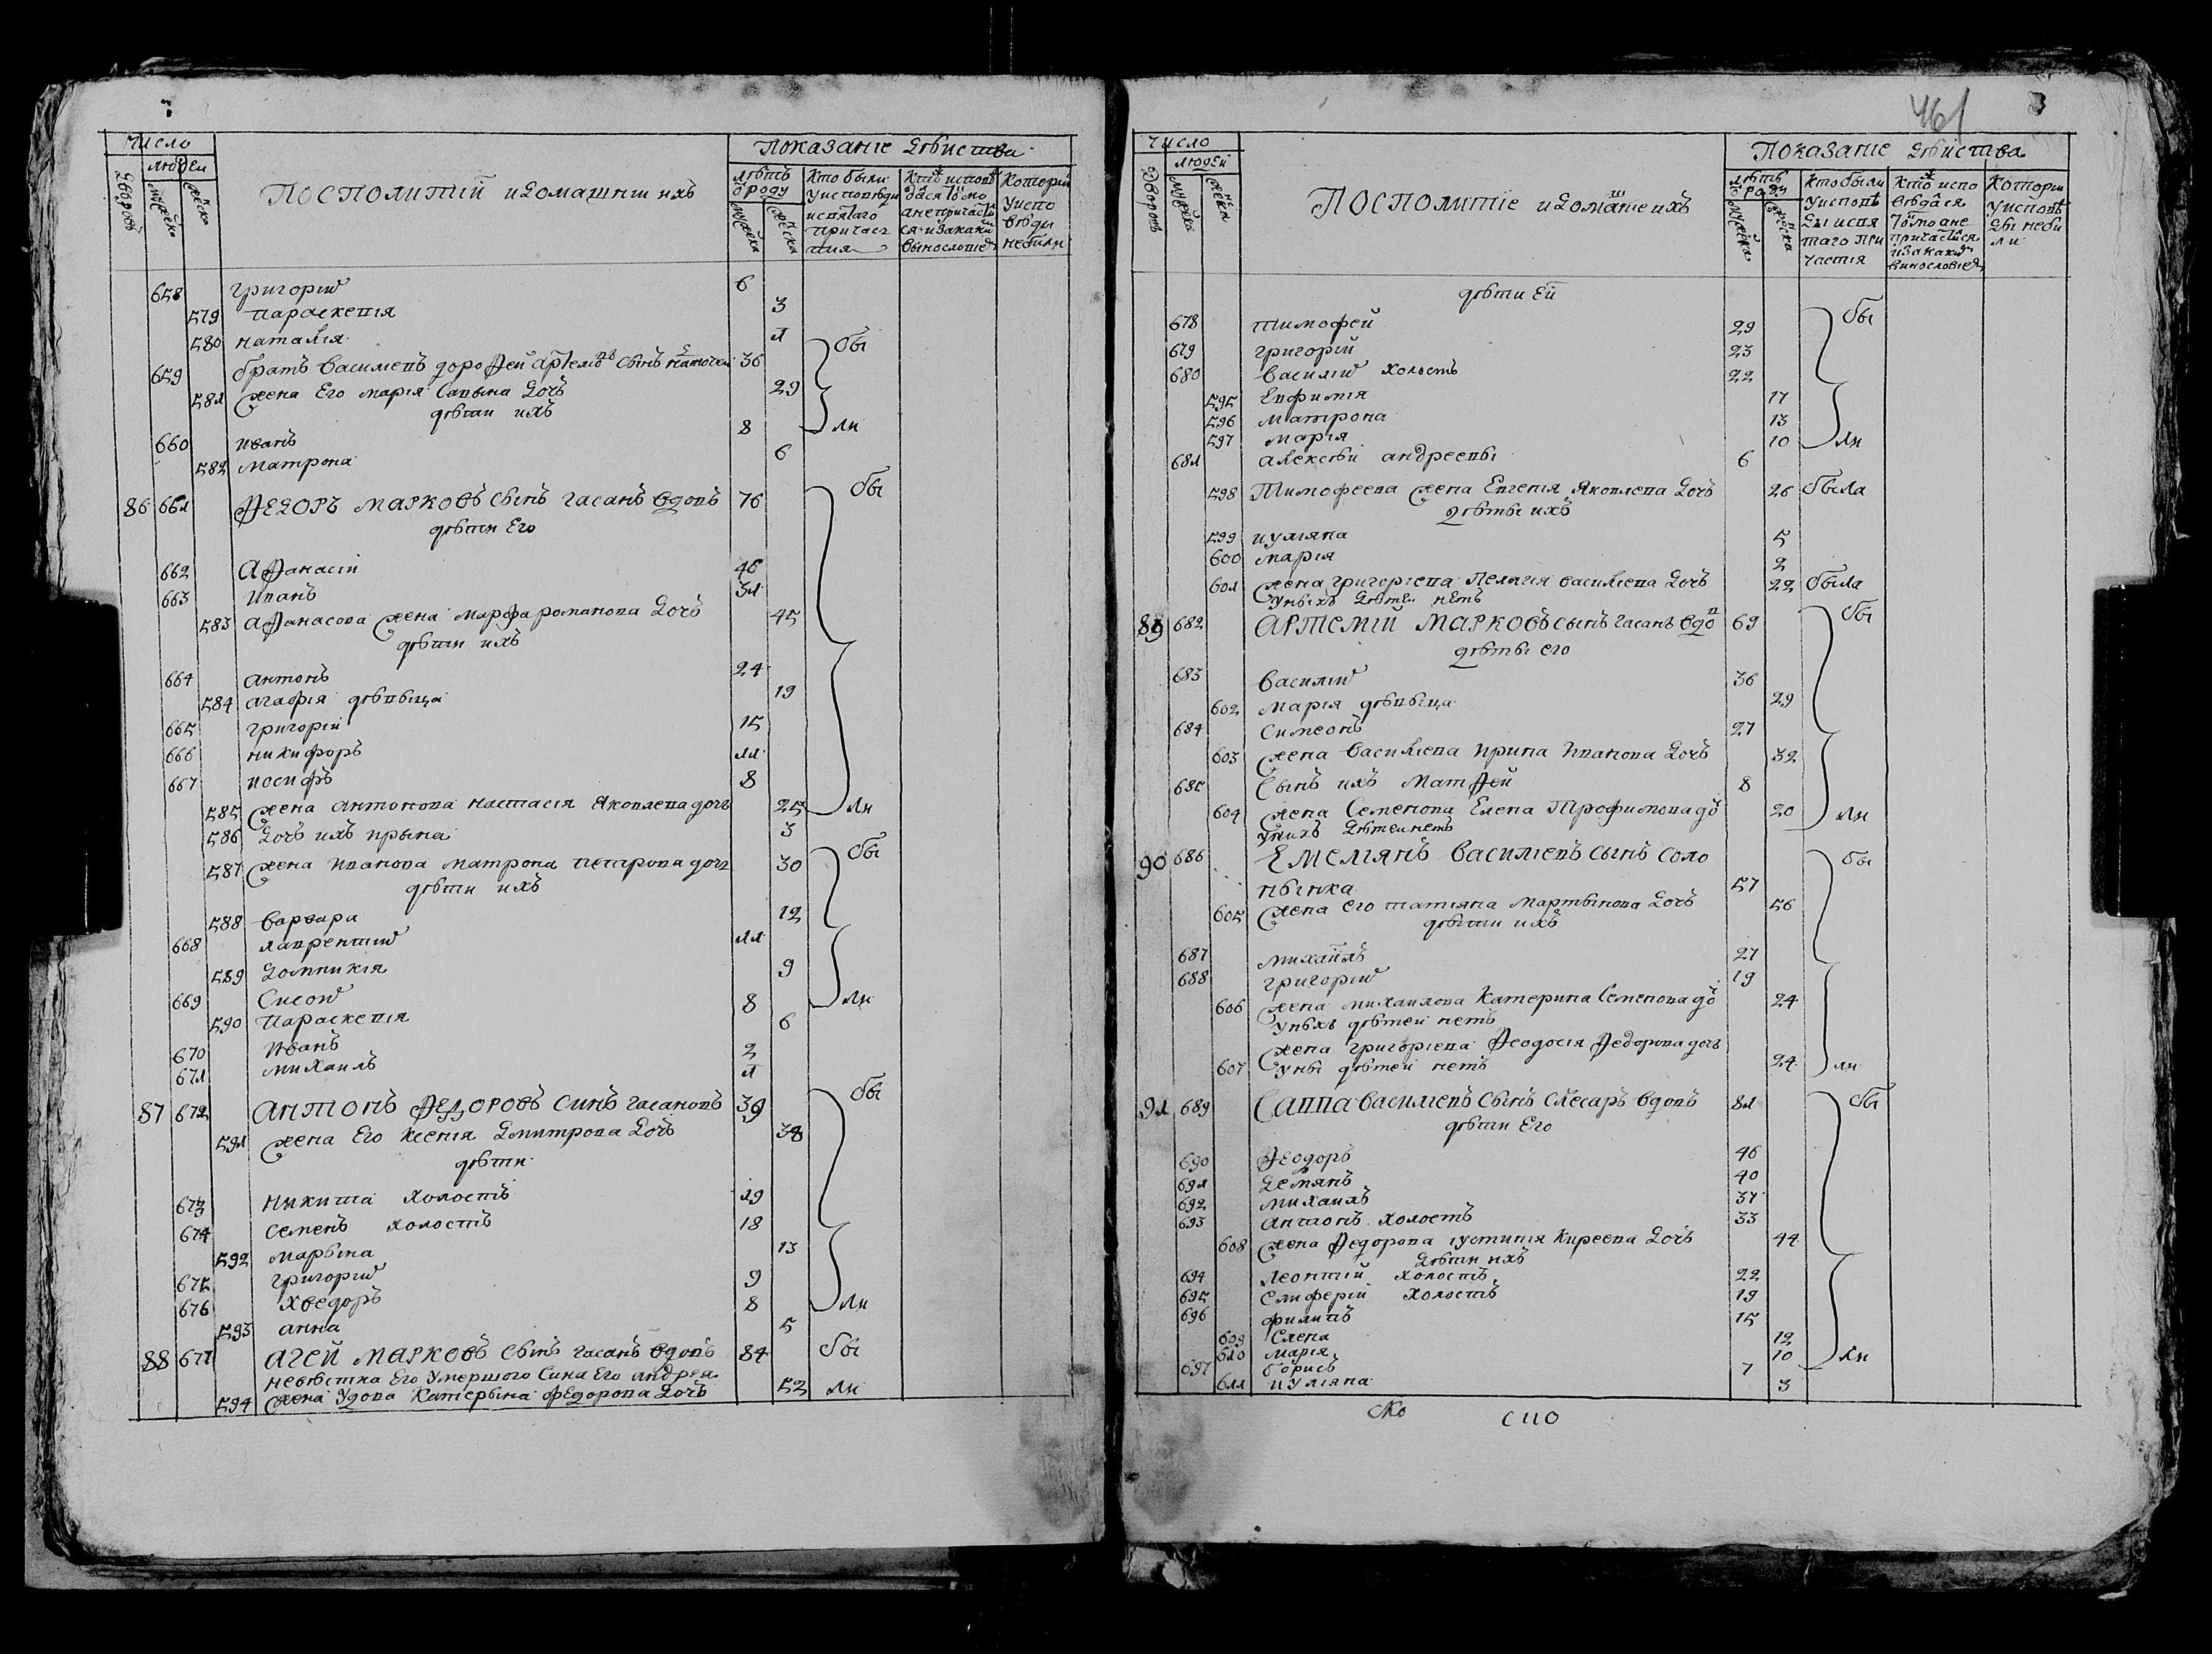 число
людей
дворовъ
мужеска
женска
Посполитіи и домашнии ихъ
Показаніе дѣиства
лѣтъ ѿ роду
мужеска
женска
кто были у исповѣди и святаго причастия
кто исповѣдася тѡмо а не причастися и за какимъ вынословіемъ
которіи у исповѣди небыли
658 григорий 6
579 параскевія 3
580 наталія 1
659 братъ василевъ дорофей артемовъ сынъ 36 бы
581 жена Его марія Савына дочь 29
дѣти ихъ
660 иванъ 8 ли
582 матрона 6
86 661 Федоръ Марковъ сынъ гасанъ вдовъ 76 бы
дѣти Его
662 Афанасій 46
663 иванъ 31
583 афанасова жена марфа романова дочь 45
дѣти ихъ
664 антонъ 24
584 агафія дѣвыца 19
665 григорій 15
666 никифоръ 11
667 иосифъ 8
585 жена антонова настасія Яковлева дочь 25 ли
586 дочь ихъ ирына 3
587 жена иванова матрона петрова дочь 30 бы
дѣти ихъ
588 варвара 12
668 лаврентий 11
589 домникія 9
669 Сисой 8 ли
590 параскевія 6
670 иванъ 2
671 михаилъ 1
87 672 Антонъ Федоровъ синъ гасановъ 39 бы
591 жена Его ксенія дмитрова дочь 38
дѣти
673 никита холостъ 19
674 семенъ холостъ 18
592 марына 13
675 григорий 9
676 хведоръ 8 ли
593 анна 5
88 677 Агей Марковъ сынъ гасанъ вдовъ 84 бы
невѣстка Его умершого сина Его андрея
594 жена удова катерына федорова дочь 52 ли
461
число
людей
дворовъ
мужеска
женска
Посполитіе и домашніе ихъ
Показаніе дѣиства
лѣтъ ѿ роду
мужеска
женска
кто были у исповѣди и святаго причастія
кто исповѣдася тѡмо а не причастися и за какимъ винословіемъ
которіи у исповѣди небили
дѣти Ей
678 тимофей 29 бы
679 григорій 23
680 василий холостъ 22
595 Евфимія 17
596 матрона 13
597 марія 10 ли
681 алексѣй андреевы 6
598 Тимофеева жена Евгенія Яковлева дочь 26 была
дѣты ихъ
599 иуліяна 5
600 марія 2
601 жена григоріева пелагія василіева дочь 22 была
у ныхъ дѣтеи нетъ
89 682 Артемій Марковъ сынъ гасанъ вдовъ 69 бы
дѣты его
683 василий 36
602 марія дѣвыца 29
684 симеонъ 27
603 жена василіева ирина иванова дочь 32
685 Сынъ ихъ Матфей 8
604 жена Семенова Елена Трофимова дочь 20 ли
у нихъ дѣтеи нетъ
90 686 Емеліянъ василіевъ сынъ соло бы
ныника 57
605 жена его татіяна мартынова дочь 56
дѣти ихъ
687 михаилъ 27
688 григорий 19
606 жена михаилова катерина Семенова дочь 24
у ныхъ дѣтей нетъ
жена григоріева Феодосія Федорова дочь
607 у ны дѣтей нетъ 24 ли
91 689 Савва василіевъ сынъ слесарь вдовъ 81 бы
дѣти Его
690 Феодоръ 46
691 демянъ 40
692 михаилъ 37
693 антонъ холостъ 33
608 жена Федорова іустинія киреева дочь 44
дѣти ихъ
694 леонтий холостъ 22
695 елиферій холостъ 19
696 филипъ 15
609 Елена 12
610 марія 10 ли
697 борисъ 7
611 иуліяна 3
ско